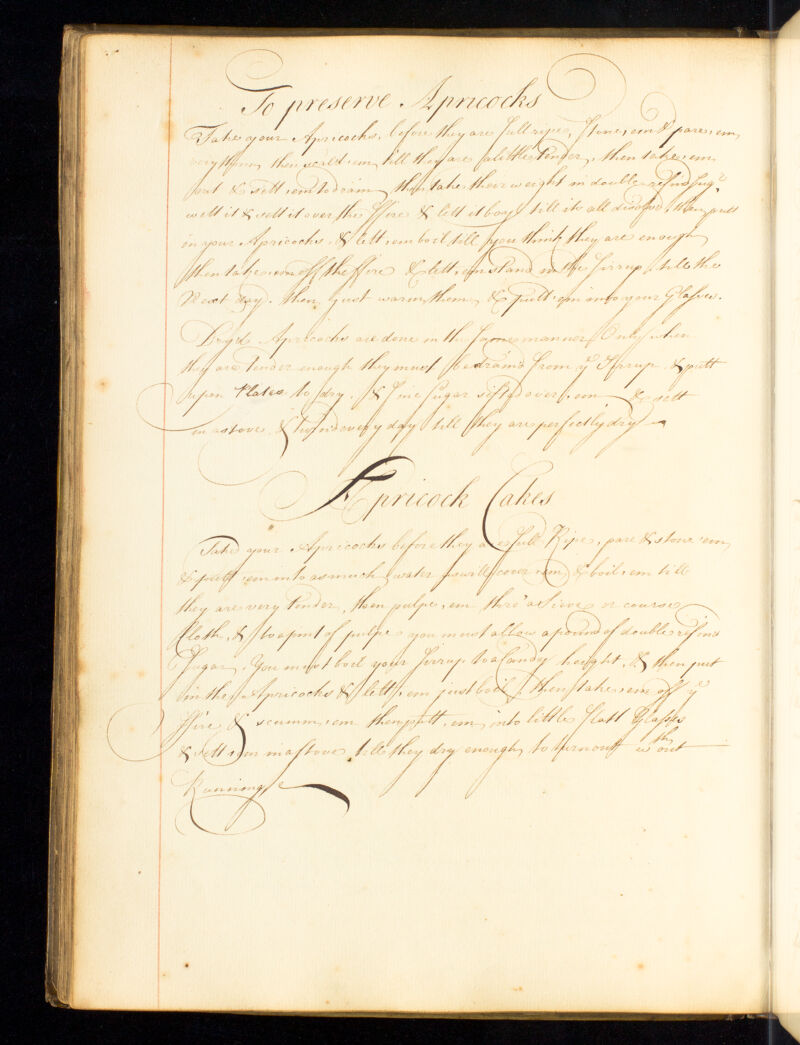 To preserve Apricocks
Take your Apricocks, before they are full ripe, stone, em & pare, em,
very thinn, then scald em, till they are a little Tender, then take, em
out & sett, em to drain, then take their weight in double refind Sugr,
wett it & sett it over the ffire & lett it boyl till its all disolved, then putt
in your Apricocks, & lett, em boil till you think they are enough
then take, em off the ffire & lett, em stand in the Sirrup till the
Next day, then just warm, them, & putt em into your Glasses.
Dryd Apricocks are done in the same manner, Only when
they are Tender enough they must be draind from ye Sirrup, & putt
upon Plates to dry, & fine Sugar sifted over, em, & sett
in a stove, & turnd every day till they are perfectly dry
Apricock Cakes
Take your Apricocks before they are full Ripe, pare & stone em,
& putt em into as much water as will cover, em, & boil, em till
they are very Tender, then pulpe, em thro' a Sieve or course
Cloth, & to a pint of pulpe you must allow a pound of double refind
Sugar, You must boil your Sirrup to a Candy height, & then put
in the Apricocks & lett, em just boil, then take em off ye
ffire & scumm, em then putt, em, into little flatt Glasses
& sett, em in a stove till they dry enough, to turn out wth out
Running